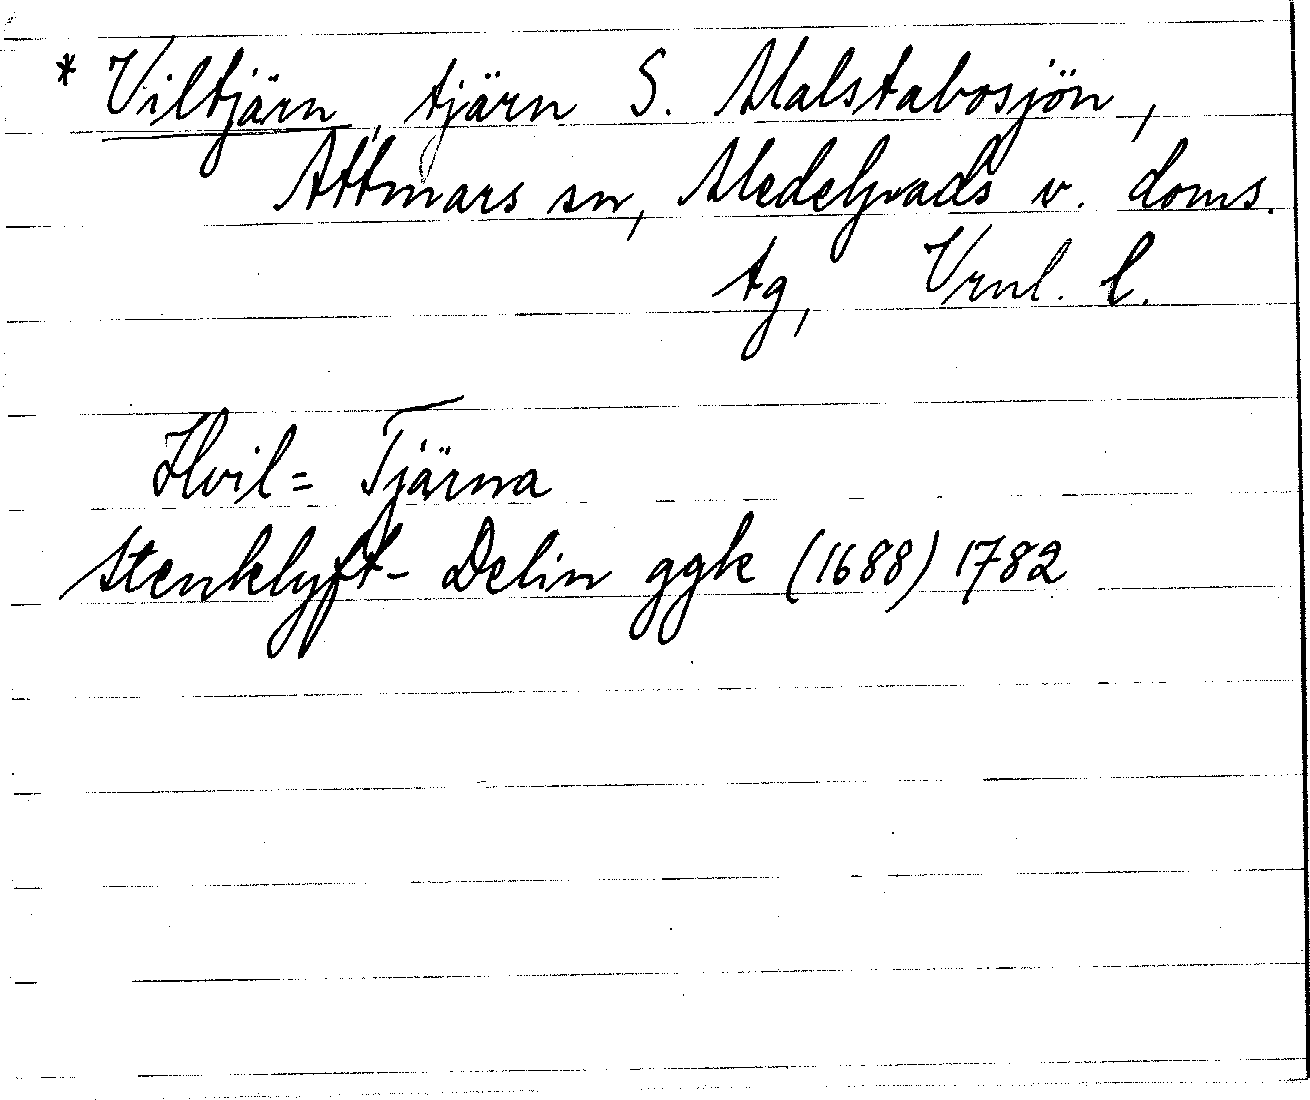 * Viltjärn, tjärn S. Malstabosjön,
Attmars sn, Medelpads v. doms.
tg, Vrnl. l.
Hvil= Tjärna
Stenklyft- Delin ggk (1688) 1782